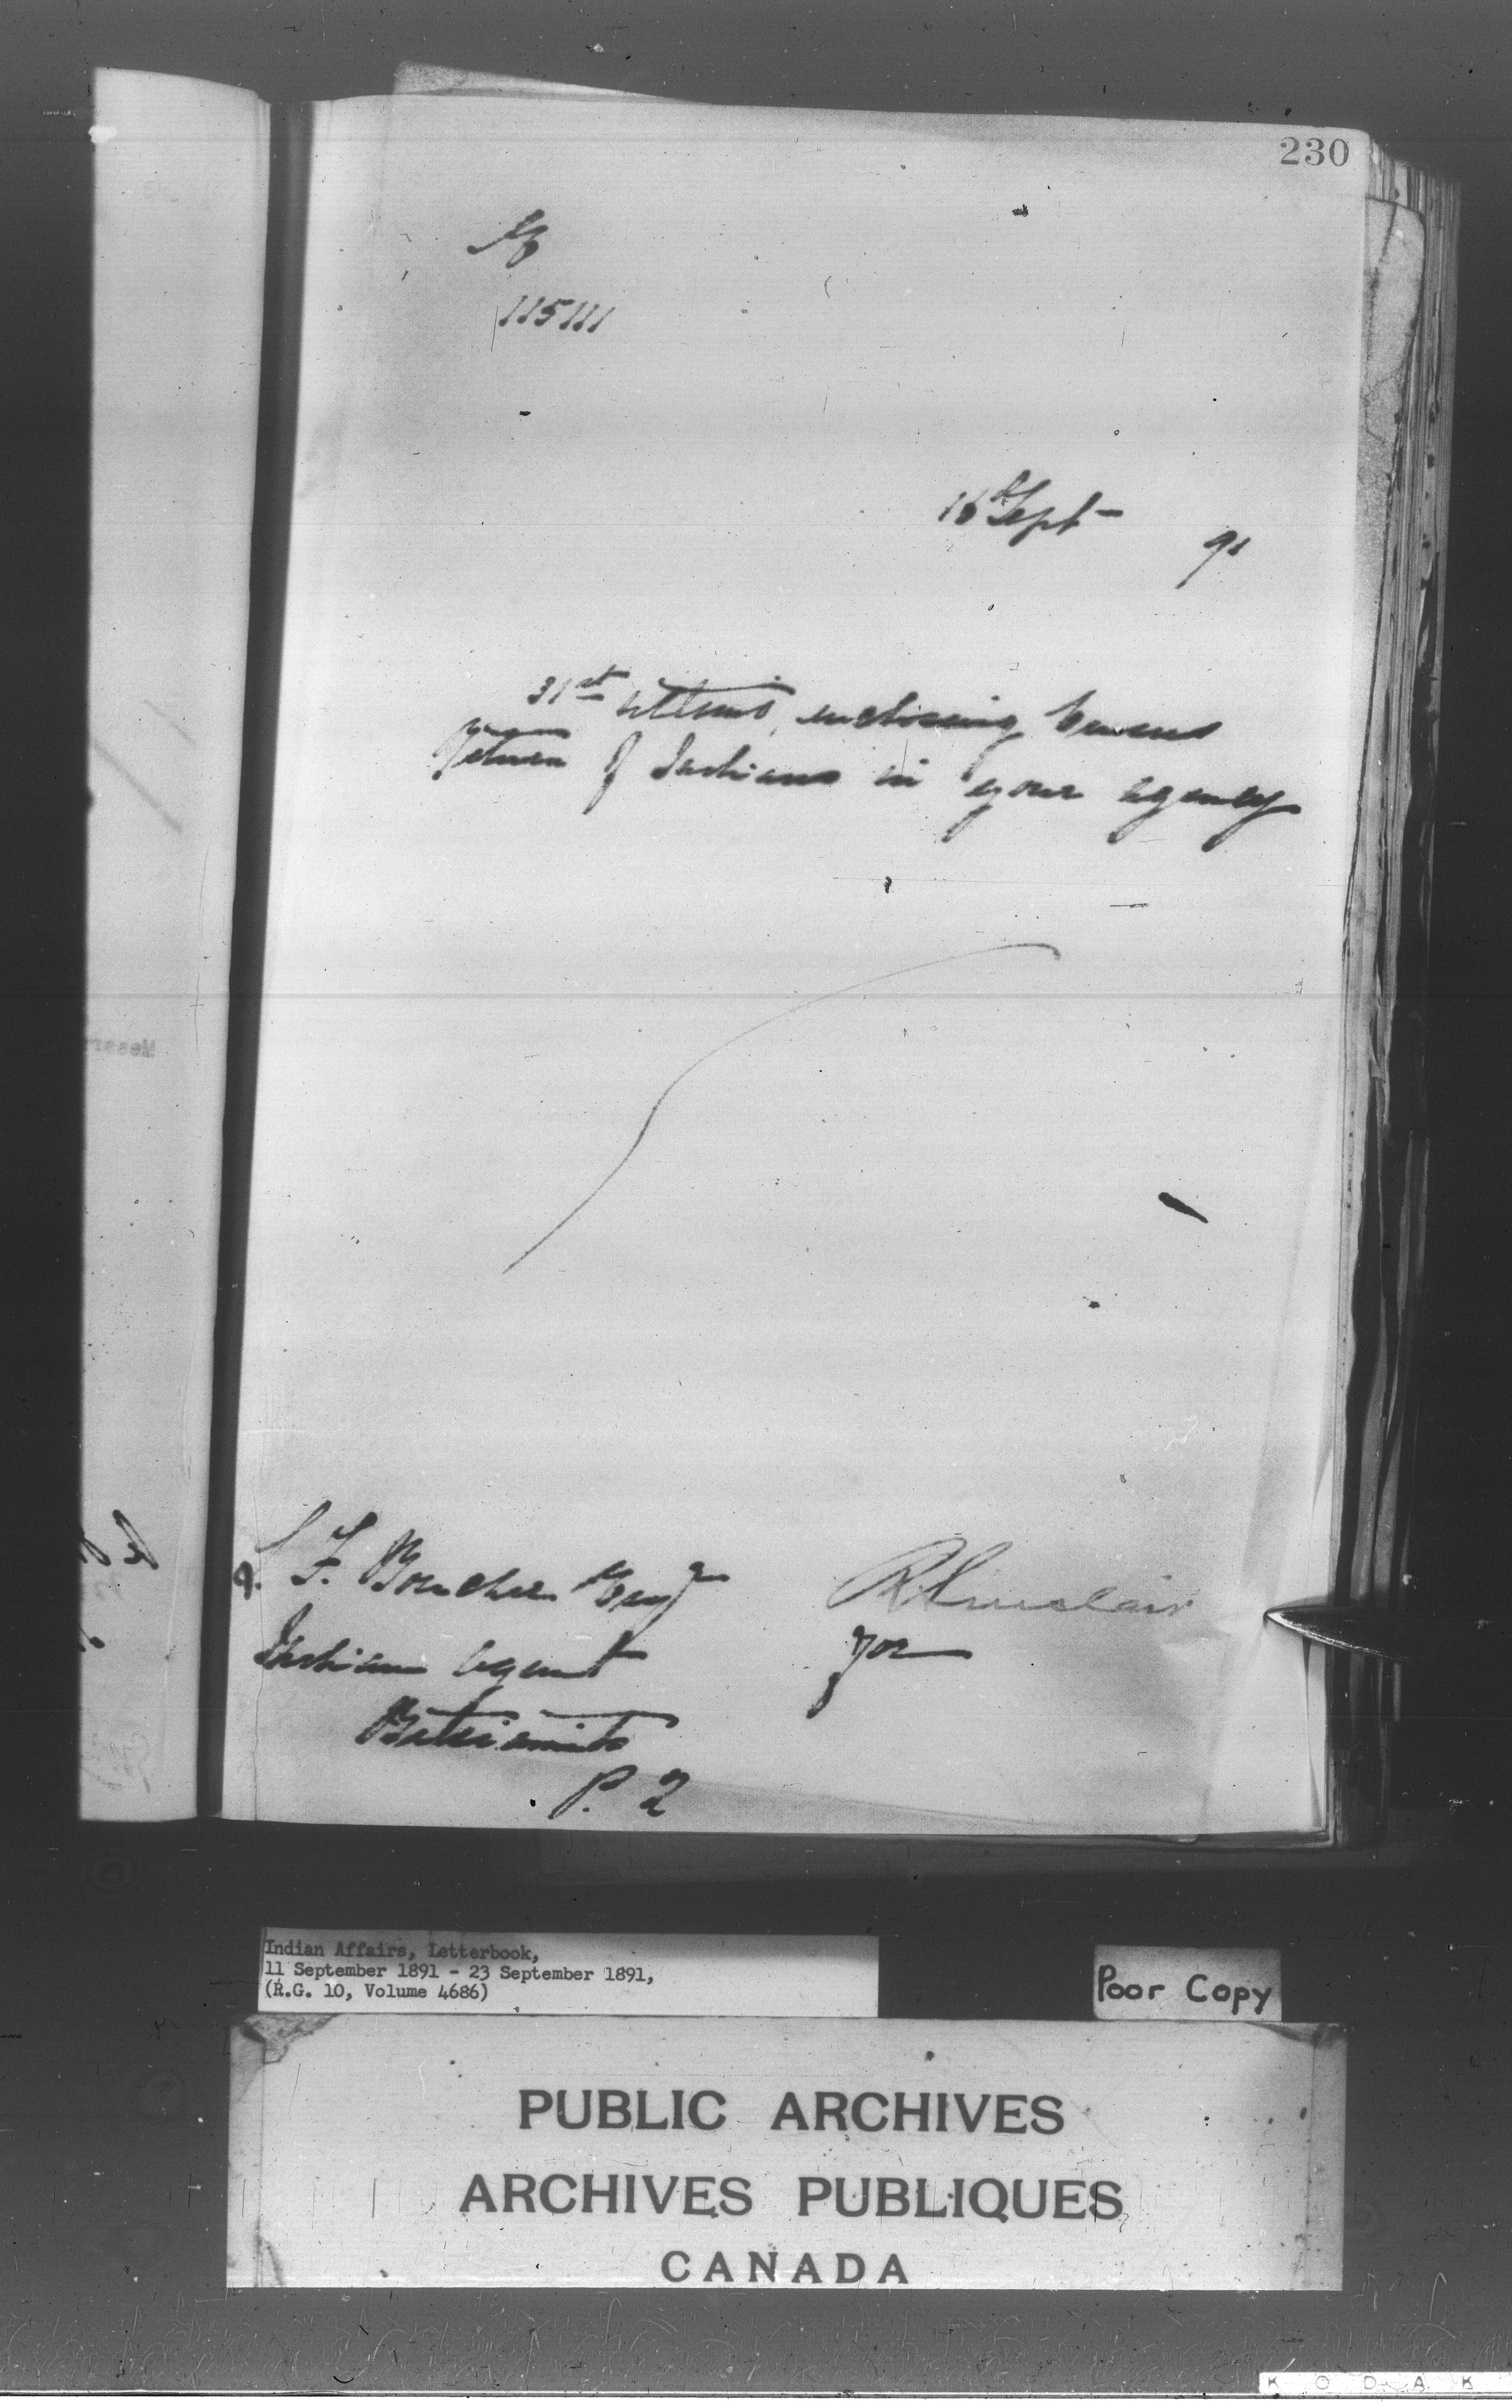 230
115111
16 Sept -
91
31st Ultimo, enclosing Census
Return of Indians in your agency
L. F. Boucher Esqr
Indian Agent
Betsiamits
P. Q
R Sinclair
for
Messr
Indian Affairs, Letterbook,
11 September 1891 - 23 September 1891,
(R.G. 10, Volume 4686)
Poor Copy
PUBLIC ARCHIVES
ARCHIVES PUBLIQUES
CANADA
KODAK